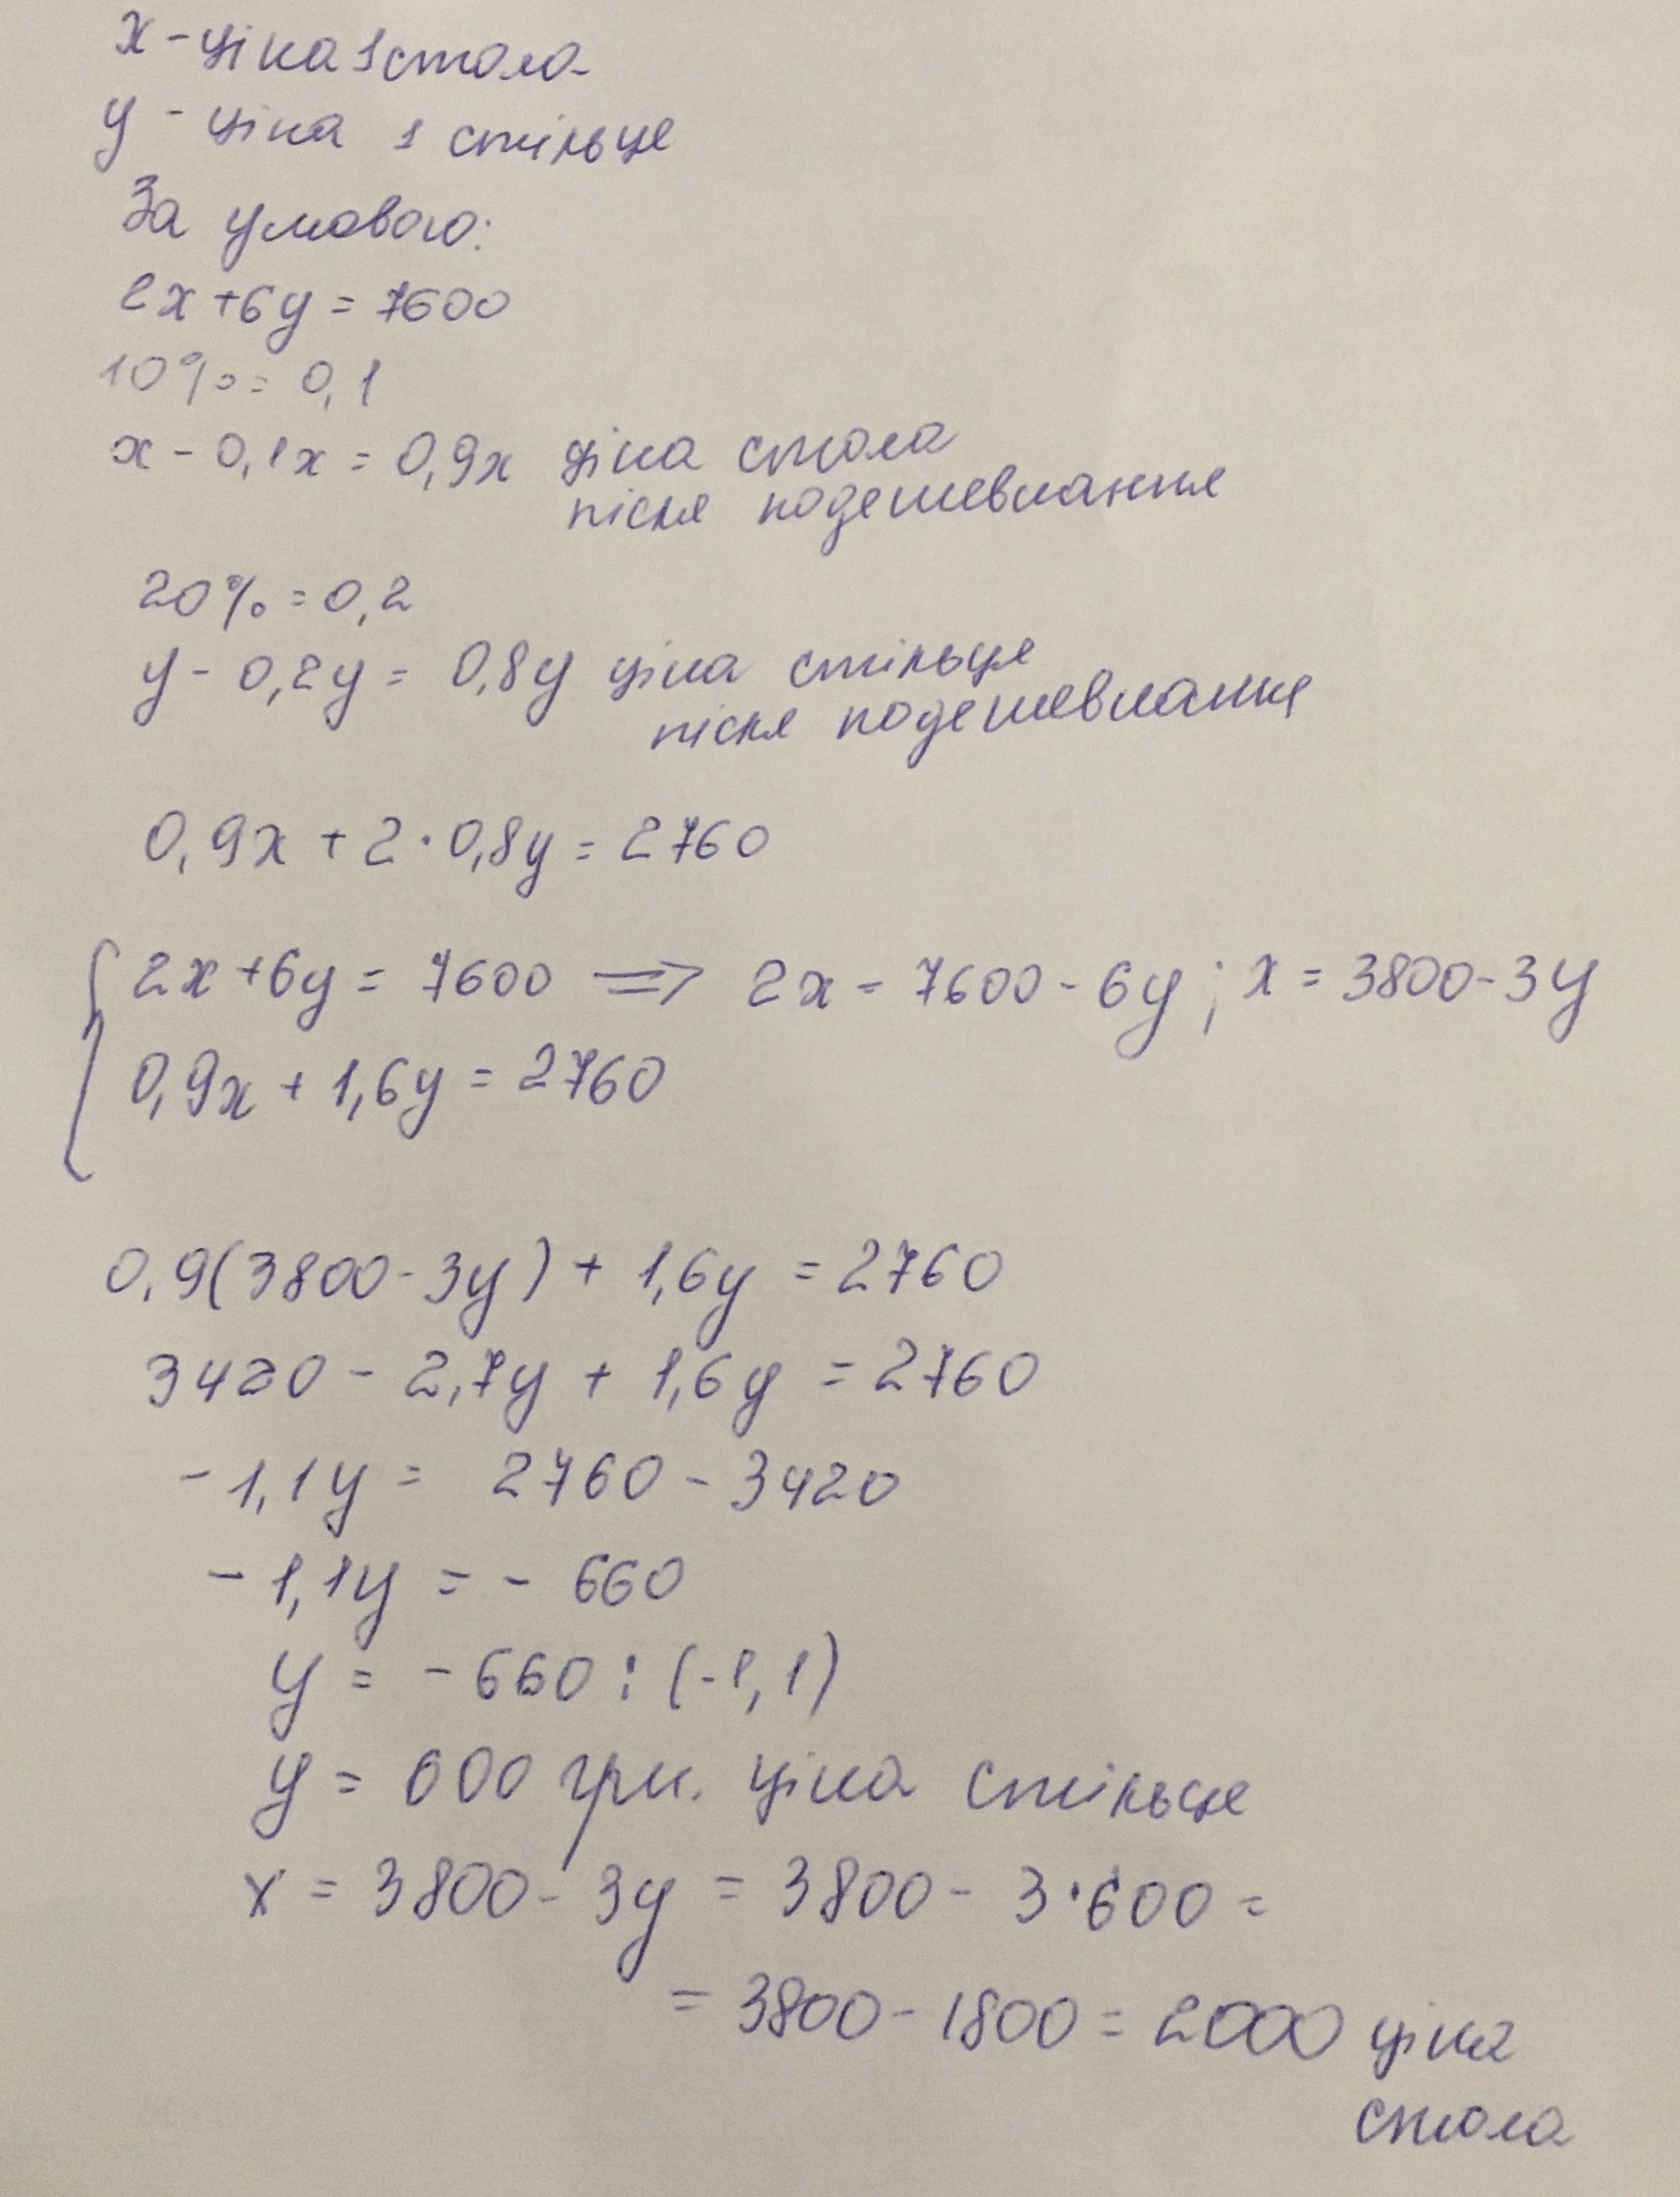 x - ціна 1 стола
y - ціна 1 стільця
За умовою:
2x + 6y = 7600
10% = 0,1
x - 0,1x = 0,9x ціна стола
після подешевшання
20% = 0,2
y - 0,2y = 0,8y ціна стільця
після подешевшання
0,9x + 2·0,8y = 2760
{ 2x + 6y = 7600 => 2x = 7600 - 6y ; x = 3800 - 3y
0,9x + 1,6y = 2760
0,9(3800 - 3y) + 1,6y = 2760
3420 - 2,7y + 1,6y = 2760
- 1,1y = 2760 - 3420
- 1,1y = - 660
y = - 660 : (-1,1)
y = 600 грн. ціна стільця
x = 3800 - 3y = 3800 - 3·600 =
= 3800 - 1800 = 2000 ціна
стола